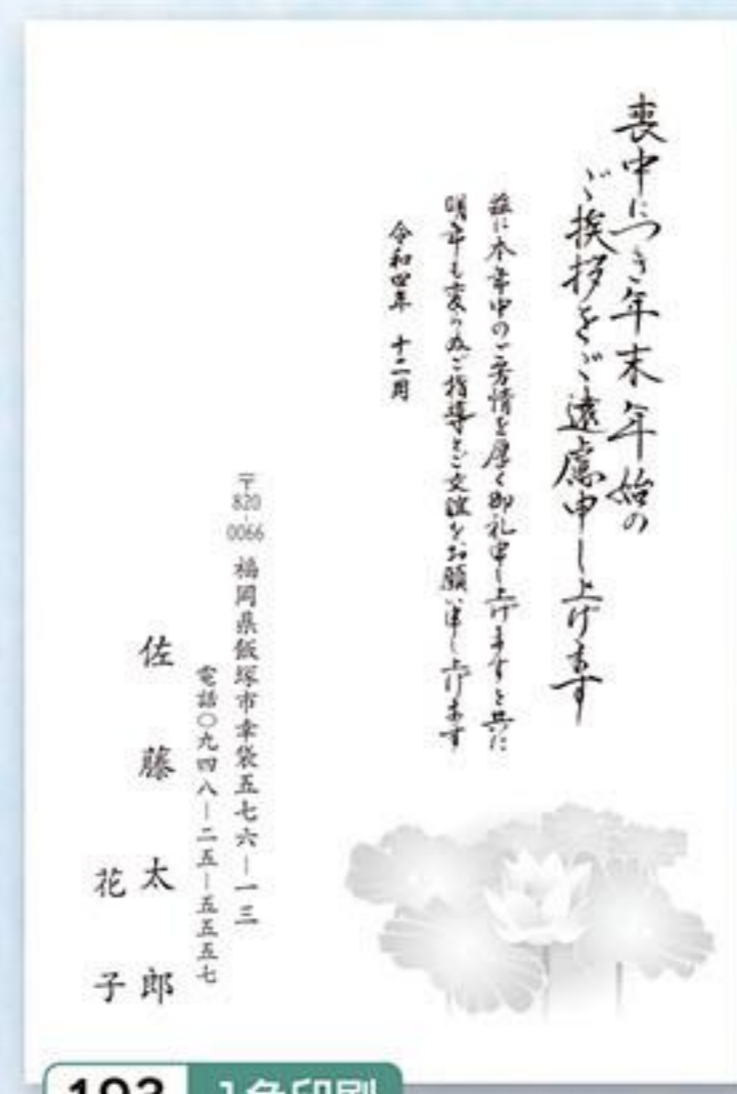 喪中につき年末年始の
ご挨拶をご遠慮申し上げます
茲に本年中のご芳情を厚く御礼申し上げますと共に
明年も変らぬご指導とご交誼をお願い申し上げます
令和四年 十二月
〒820-0066 福岡県飯塚市幸袋五七六ー一三
電話〇九四八ー二五ー五五五七
佐藤 太郎
花子
193 1色印刷